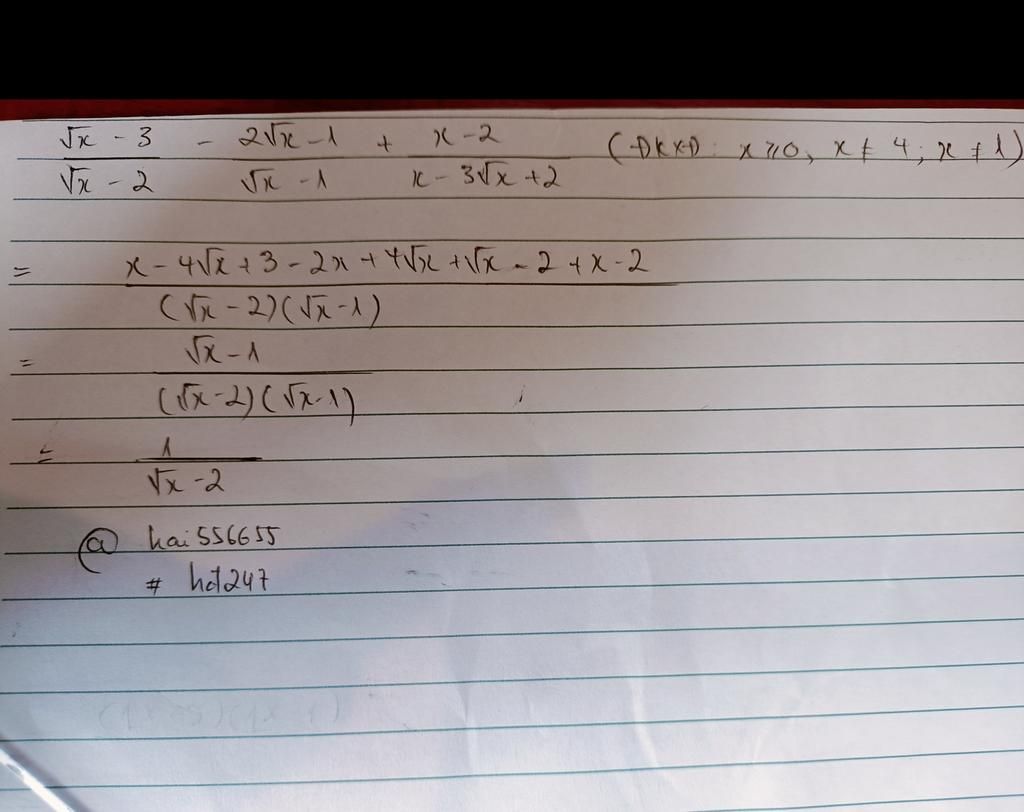 √x - 3 / √x - 2 - 2√x - 1 / √x - 1 + x - 2 / x - 3√x + 2 (ĐKXĐ: x ≥ 0, x ≠ 4; x ≠ 1)
= x - 4√x + 3 - 2x + 4√x + √x - 2 + x - 2 / (√x - 2)(√x - 1)
= √x - 1 / (√x - 2)(√x - 1)
= 1 / √x - 2
@ hai556655
# hd247